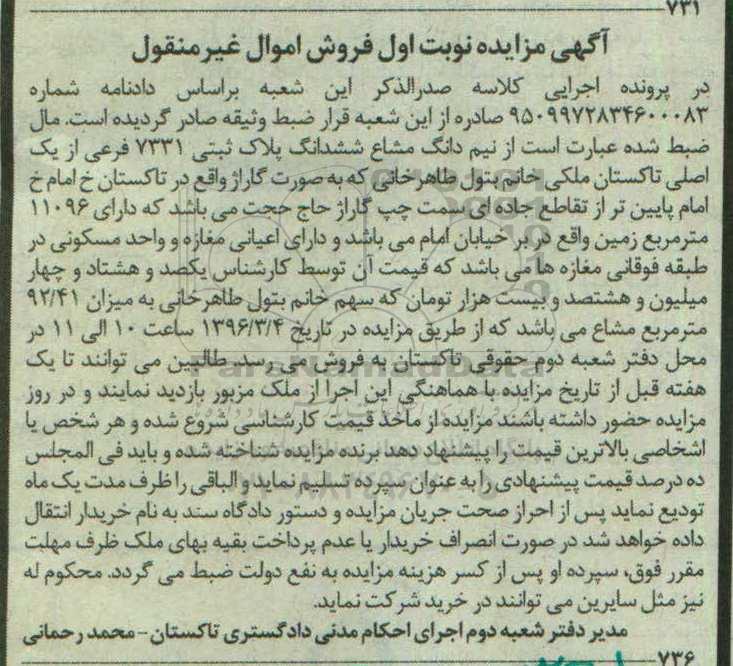 ۷۳۱
آگهی مزایده نوبت اول فروش اموال غیرمنقول
در پرونده اجرایی کلاسه صدرالذکر این شعبه براساس دادنامه شماره
۹۵۰۹۹۷۲۸۳۴۶۰۰۰۸۳ صادره از این شعبه قرار ضبط وثیقه صادر گردیده است. مال
ضبط شده عبارت است از نیم دانگ مشاع ششدانگ پلاک ثبتی ۷۳۳۱ فرعی از یک
اصلی تاکستان ملکی خانم بتول طاهرخانی که به صورت گاراژ واقع در تاکستان خ امام خ
امام پایین تر از تقاطع جاده ای سمت چپ گاراژ حاج حجت می باشد که دارای ۱۱۰۹۶
مترمربع زمین واقع در بر خیابان امام می باشد و دارای اعیانی مغازه و واحد مسکونی در
طبقه فوقانی مغازه ها می باشد که قیمت آن توسط کارشناس یکصد و هشتاد و چهار
میلیون و هشتصد و بیست هزار تومان که سهم خانم بتول طاهرخانی به میزان ۹۲/۴۱
مترمربع مشاع می باشد که از طریق مزایده در تاریخ ۱۳۹۶/۳/۴ ساعت ۱۰ الی ۱۱ در
محل دفتر شعبه دوم حقوقی تاکستان به فروش می رسد. طالبین می توانند تا یک
هفته قبل از تاریخ مزایده با هماهنگی این اجرا از ملک مزبور بازدید نمایند و در روز
مزایده حضور داشته باشند مزایده از ماخذ قیمت کارشناسی شروع شده و هر شخص یا
اشخاصی بالاترین قیمت را پیشنهاد دهد برنده مزایده شناخته شده و باید فی المجلس
ده درصد قیمت پیشنهادی را به عنوان سپرده تسلیم نماید و الباقی را ظرف مدت یک ماه
تودیع نماید پس از احراز صحت جریان مزایده و دستور دادگاه سند به نام خریدار انتقال
داده خواهد شد در صورت انصراف خریدار یا عدم پرداخت بقیه بهای ملک ظرف مهلت
مقرر فوق، سپرده او پس از کسر هزینه مزایده به نفع دولت ضبط می گردد. محکوم له
نیز مثل سایرین می توانند در خرید شرکت نماید.
مدیر دفتر شعبه دوم اجرای احکام مدنی دادگستری تاکستان - محمد رحمانی
۷۳۶